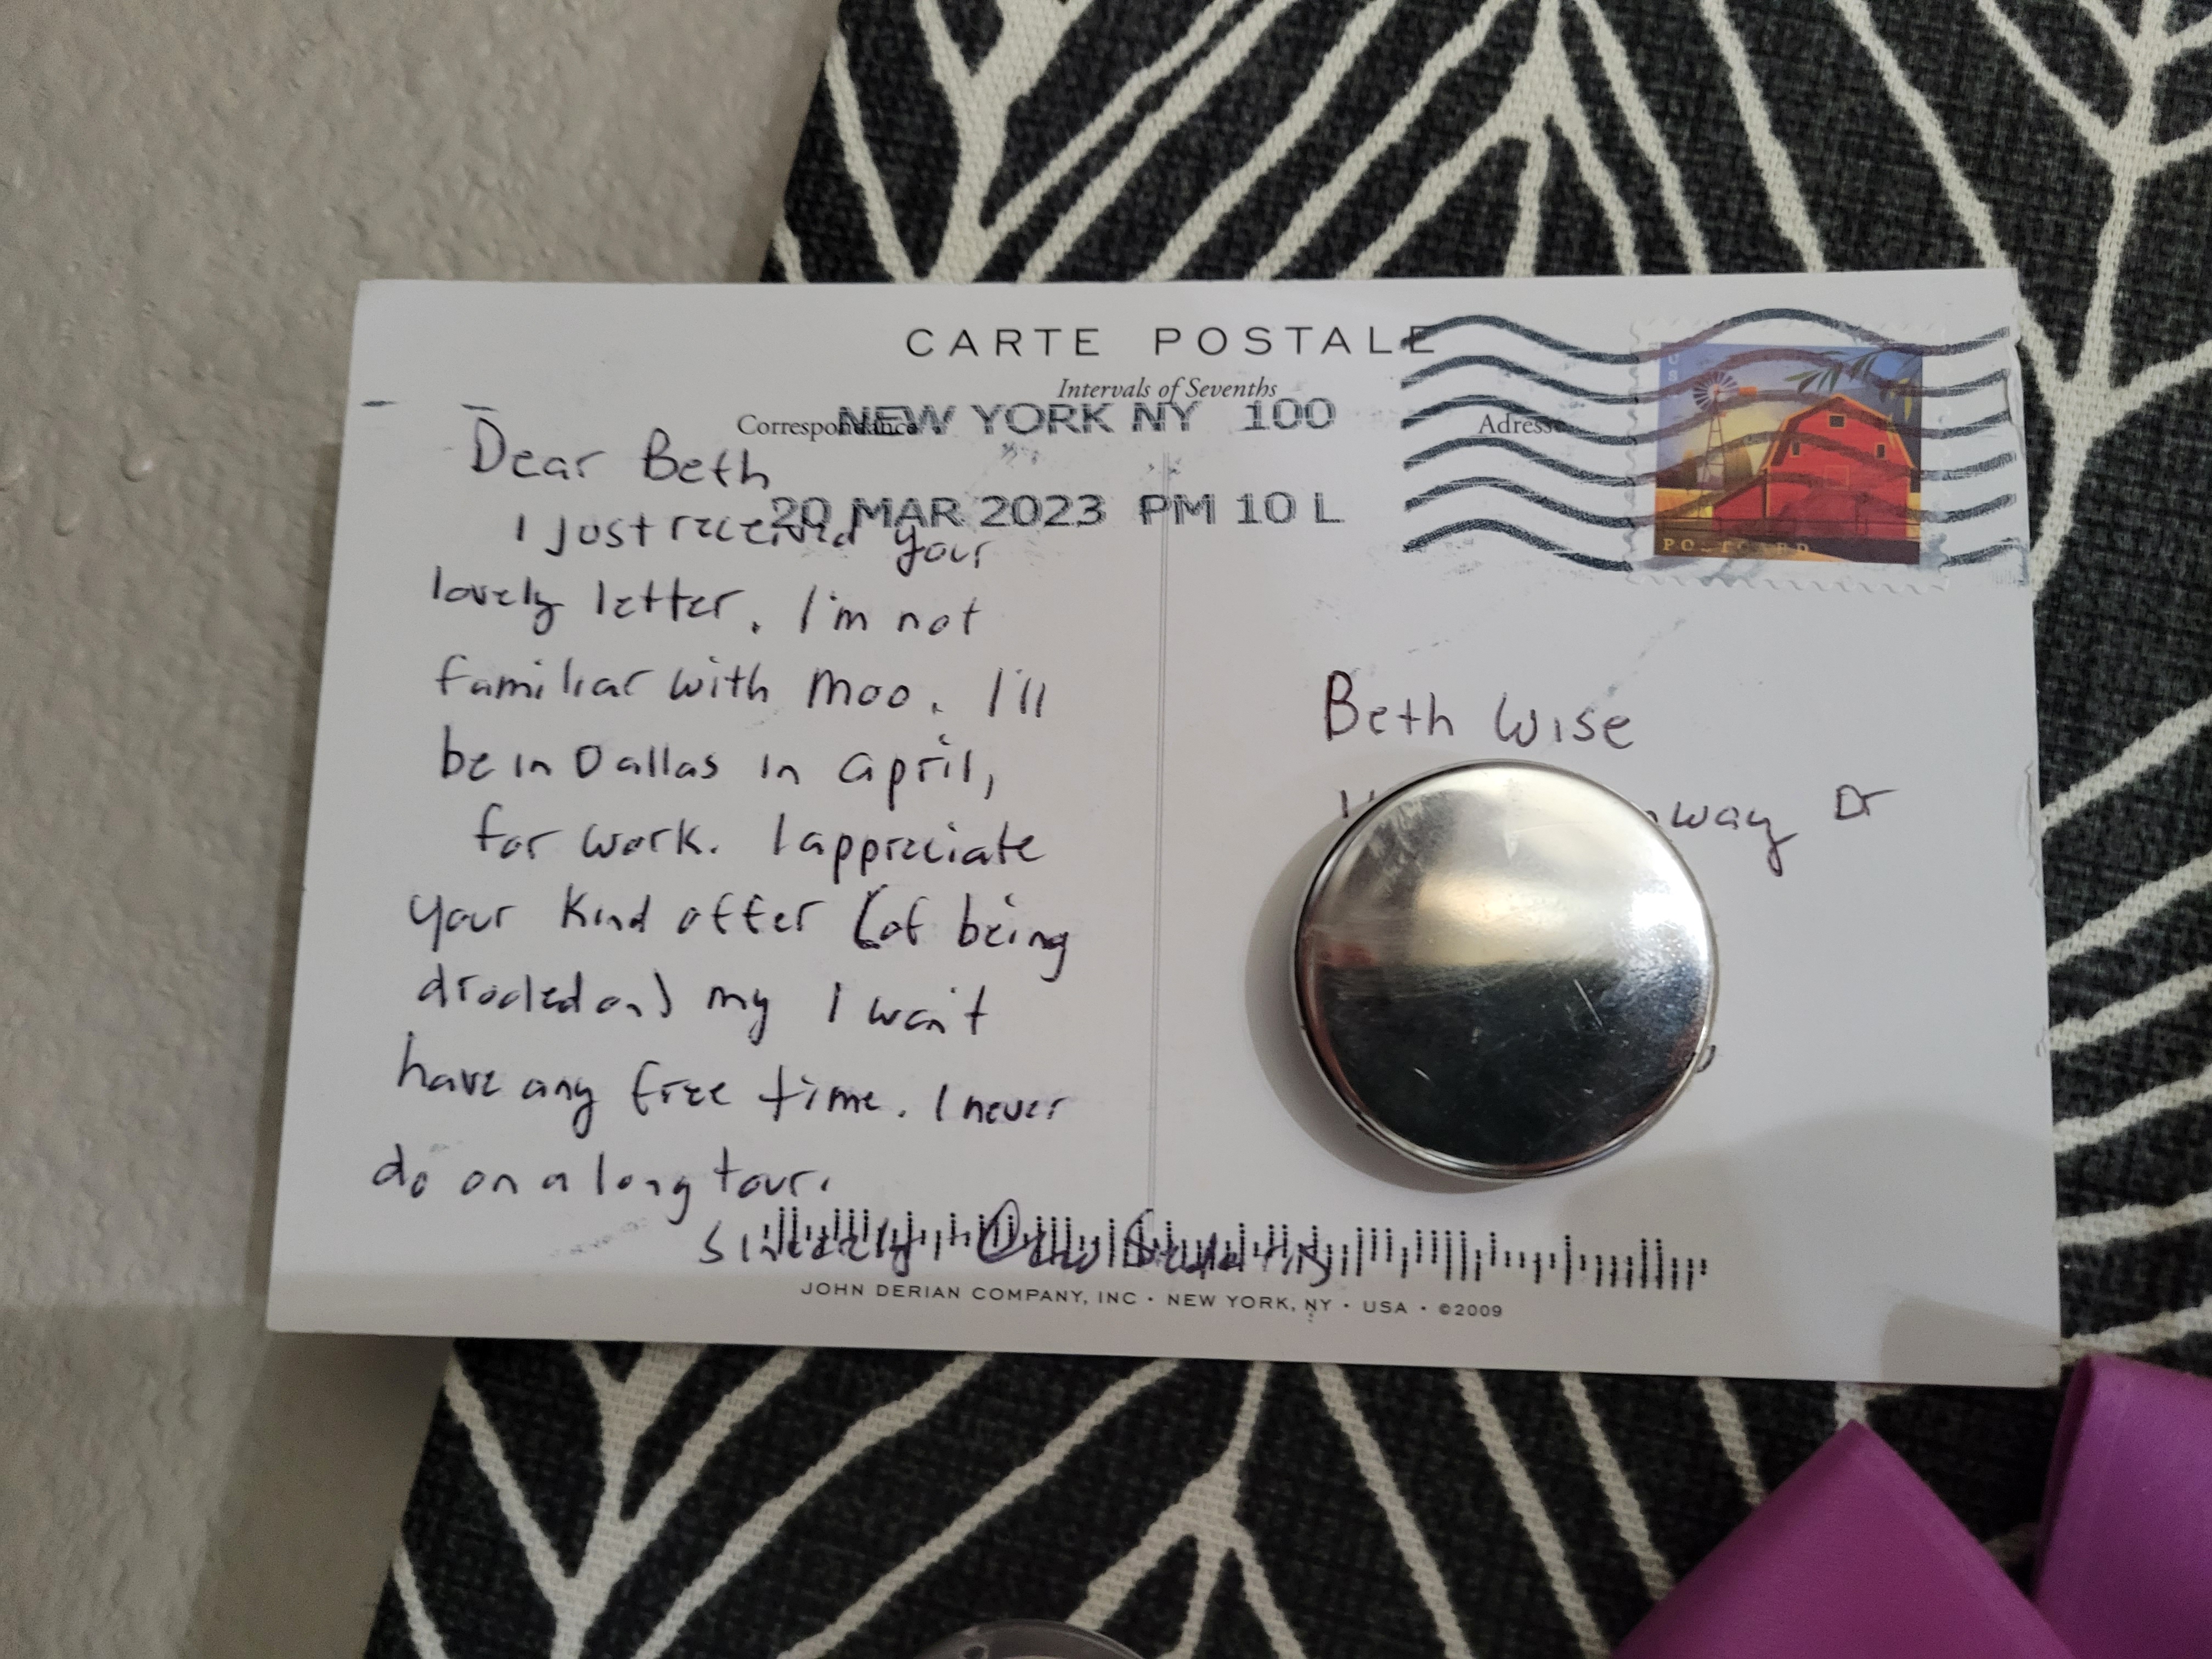 CARTE POSTALE
Intervals of Sevenths
Correspondance
Adresse
NEW YORK NY 100
20 MAR 2023 PM 10 L
USA
POSTCARD
Dear Beth
I just received your
lovely letter. I'm not
familiar with Moo. I'll
be in Dallas in april,
for work. I appreciate
your kind offer (of being
drooled on) my I won't
have any free time. I never
do on a long tour.
Sincerely
Beth Wise
way Dr
JOHN DERIAN COMPANY, INC • NEW YORK, NY • USA • ©2009